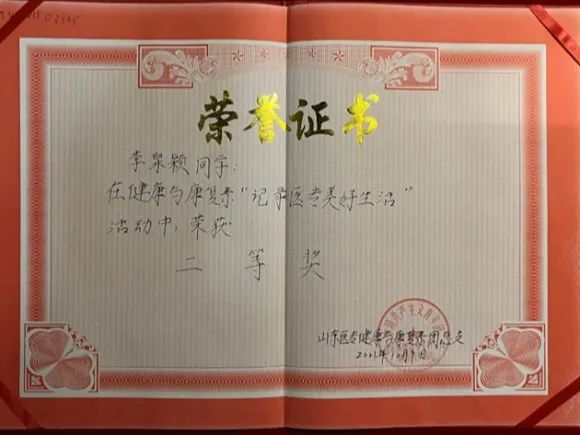 荣誉证书
李泉颖同学:
在健康与康复系“记录医专美好生活”
活动中,荣获
二等奖
山东医专健康与康复系团总支
2021年10月9日